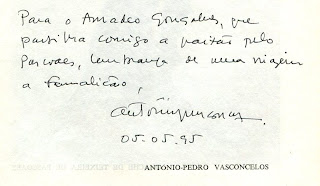 Para o Amadeo Gonçalves, que
partilha comigo a paixão pelo
Pascoaes, lembrança de uma viagem
a Famalicão,
05.05.95
ANTÓNIO-PEDRO VASCONCELOS